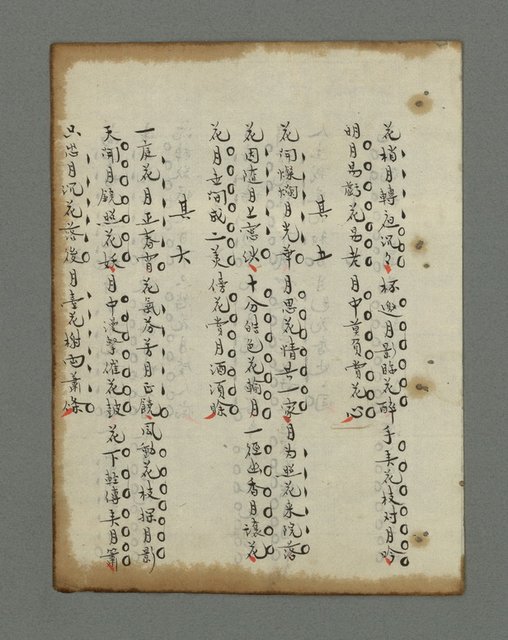 花梢月轉夜沉々杯邀月影臨花醉手弄花枝对月吟
明月易虧花易老月中莫負賞花心
其五
花開爛熳月光華月思花情共一家月为照花来院落
花因隨月上窓紗十分皓色花輸月一徑幽香月讓花
花月世间成二美傍花賞月酒須賒
其六
一庭花月正春宵花氣芬芳月正饒風動花枝探月影
天開月鏡照花妖月中漫擊催花鼓花下輕傳弄月簫
只恐月沉花落後月臺花榭両蕭條